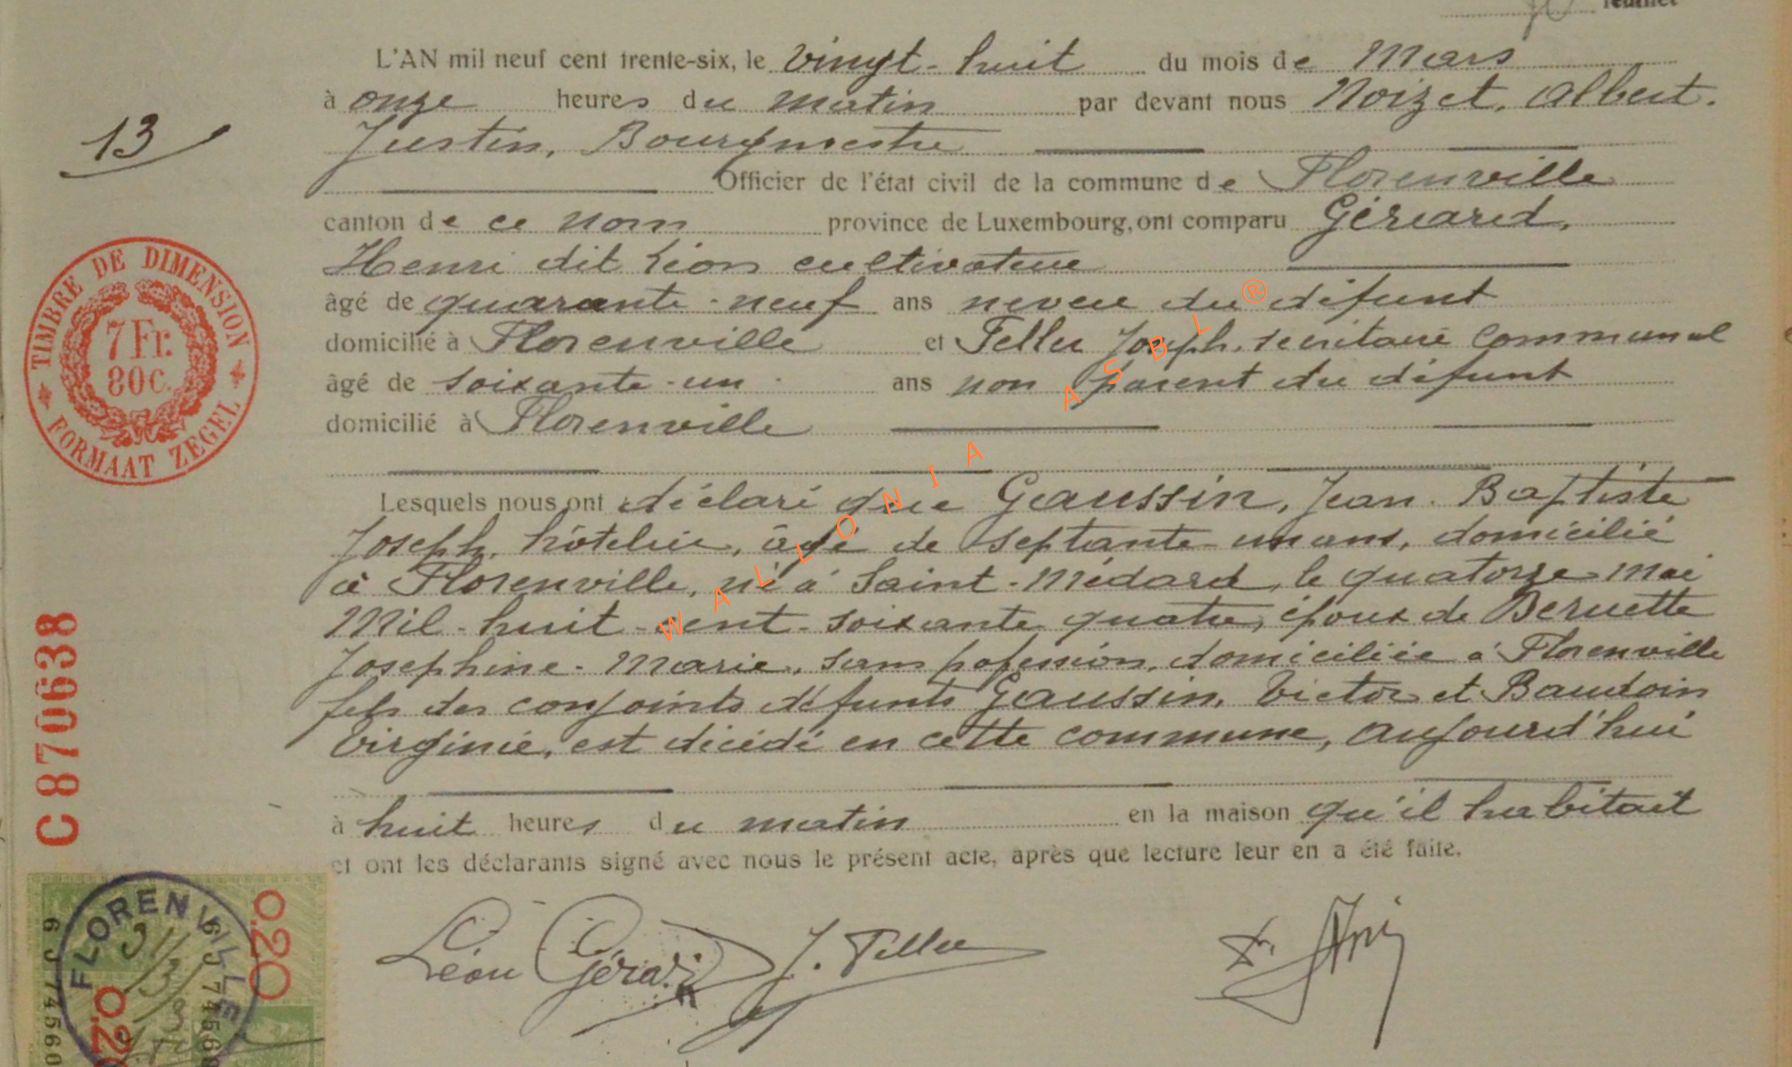 feuillet
L'AN mil neuf cent trente-six, le vingt-huit du mois de Mars
à onze heures du matin par devant nous Noizet, Albert.
Justin, Bourgmestre
13
Officier de l'état civil de la commune de Florenville
canton de ce nom province de Luxembourg, ont comparu Gérard,
Henri dit Léon cultivateur
âgé de quarante-neuf ans neveu du défunt
domicilié à Florenville et Feller Joseph, secrétaire communal
âgé de soixante-un ans non parent du défunt
domicilié à Florenville
TIMBRE DE DIMENSION
7 Fr.
80 c.
FORMAAT ZEGEL
Lesquels nous ont déclaré que Gaussin, Jean-Baptiste
Joseph, hôtelier, âgé de septante-un ans, domicilié
à Florenville, né à Saint-Médard, le quatorze mai
Mil-huit-cent-soixante quatre, époux de
Josephine-Marie, sans profession, domiciliée à Florenville
fils des conjoints défunts Gaussin, Victor et Baudoin
Virginie, est décédé en cette commune, aujourd'hui
à huit heures du matin en la maison qu'il habitait
et ont les déclarants signé avec nous le présent acte, après que lecture leur en a été faite.
C870638
WALLONIA ASBL ®
Léon Gérard J. Feller
FLORENVILLE
0.20
0.20